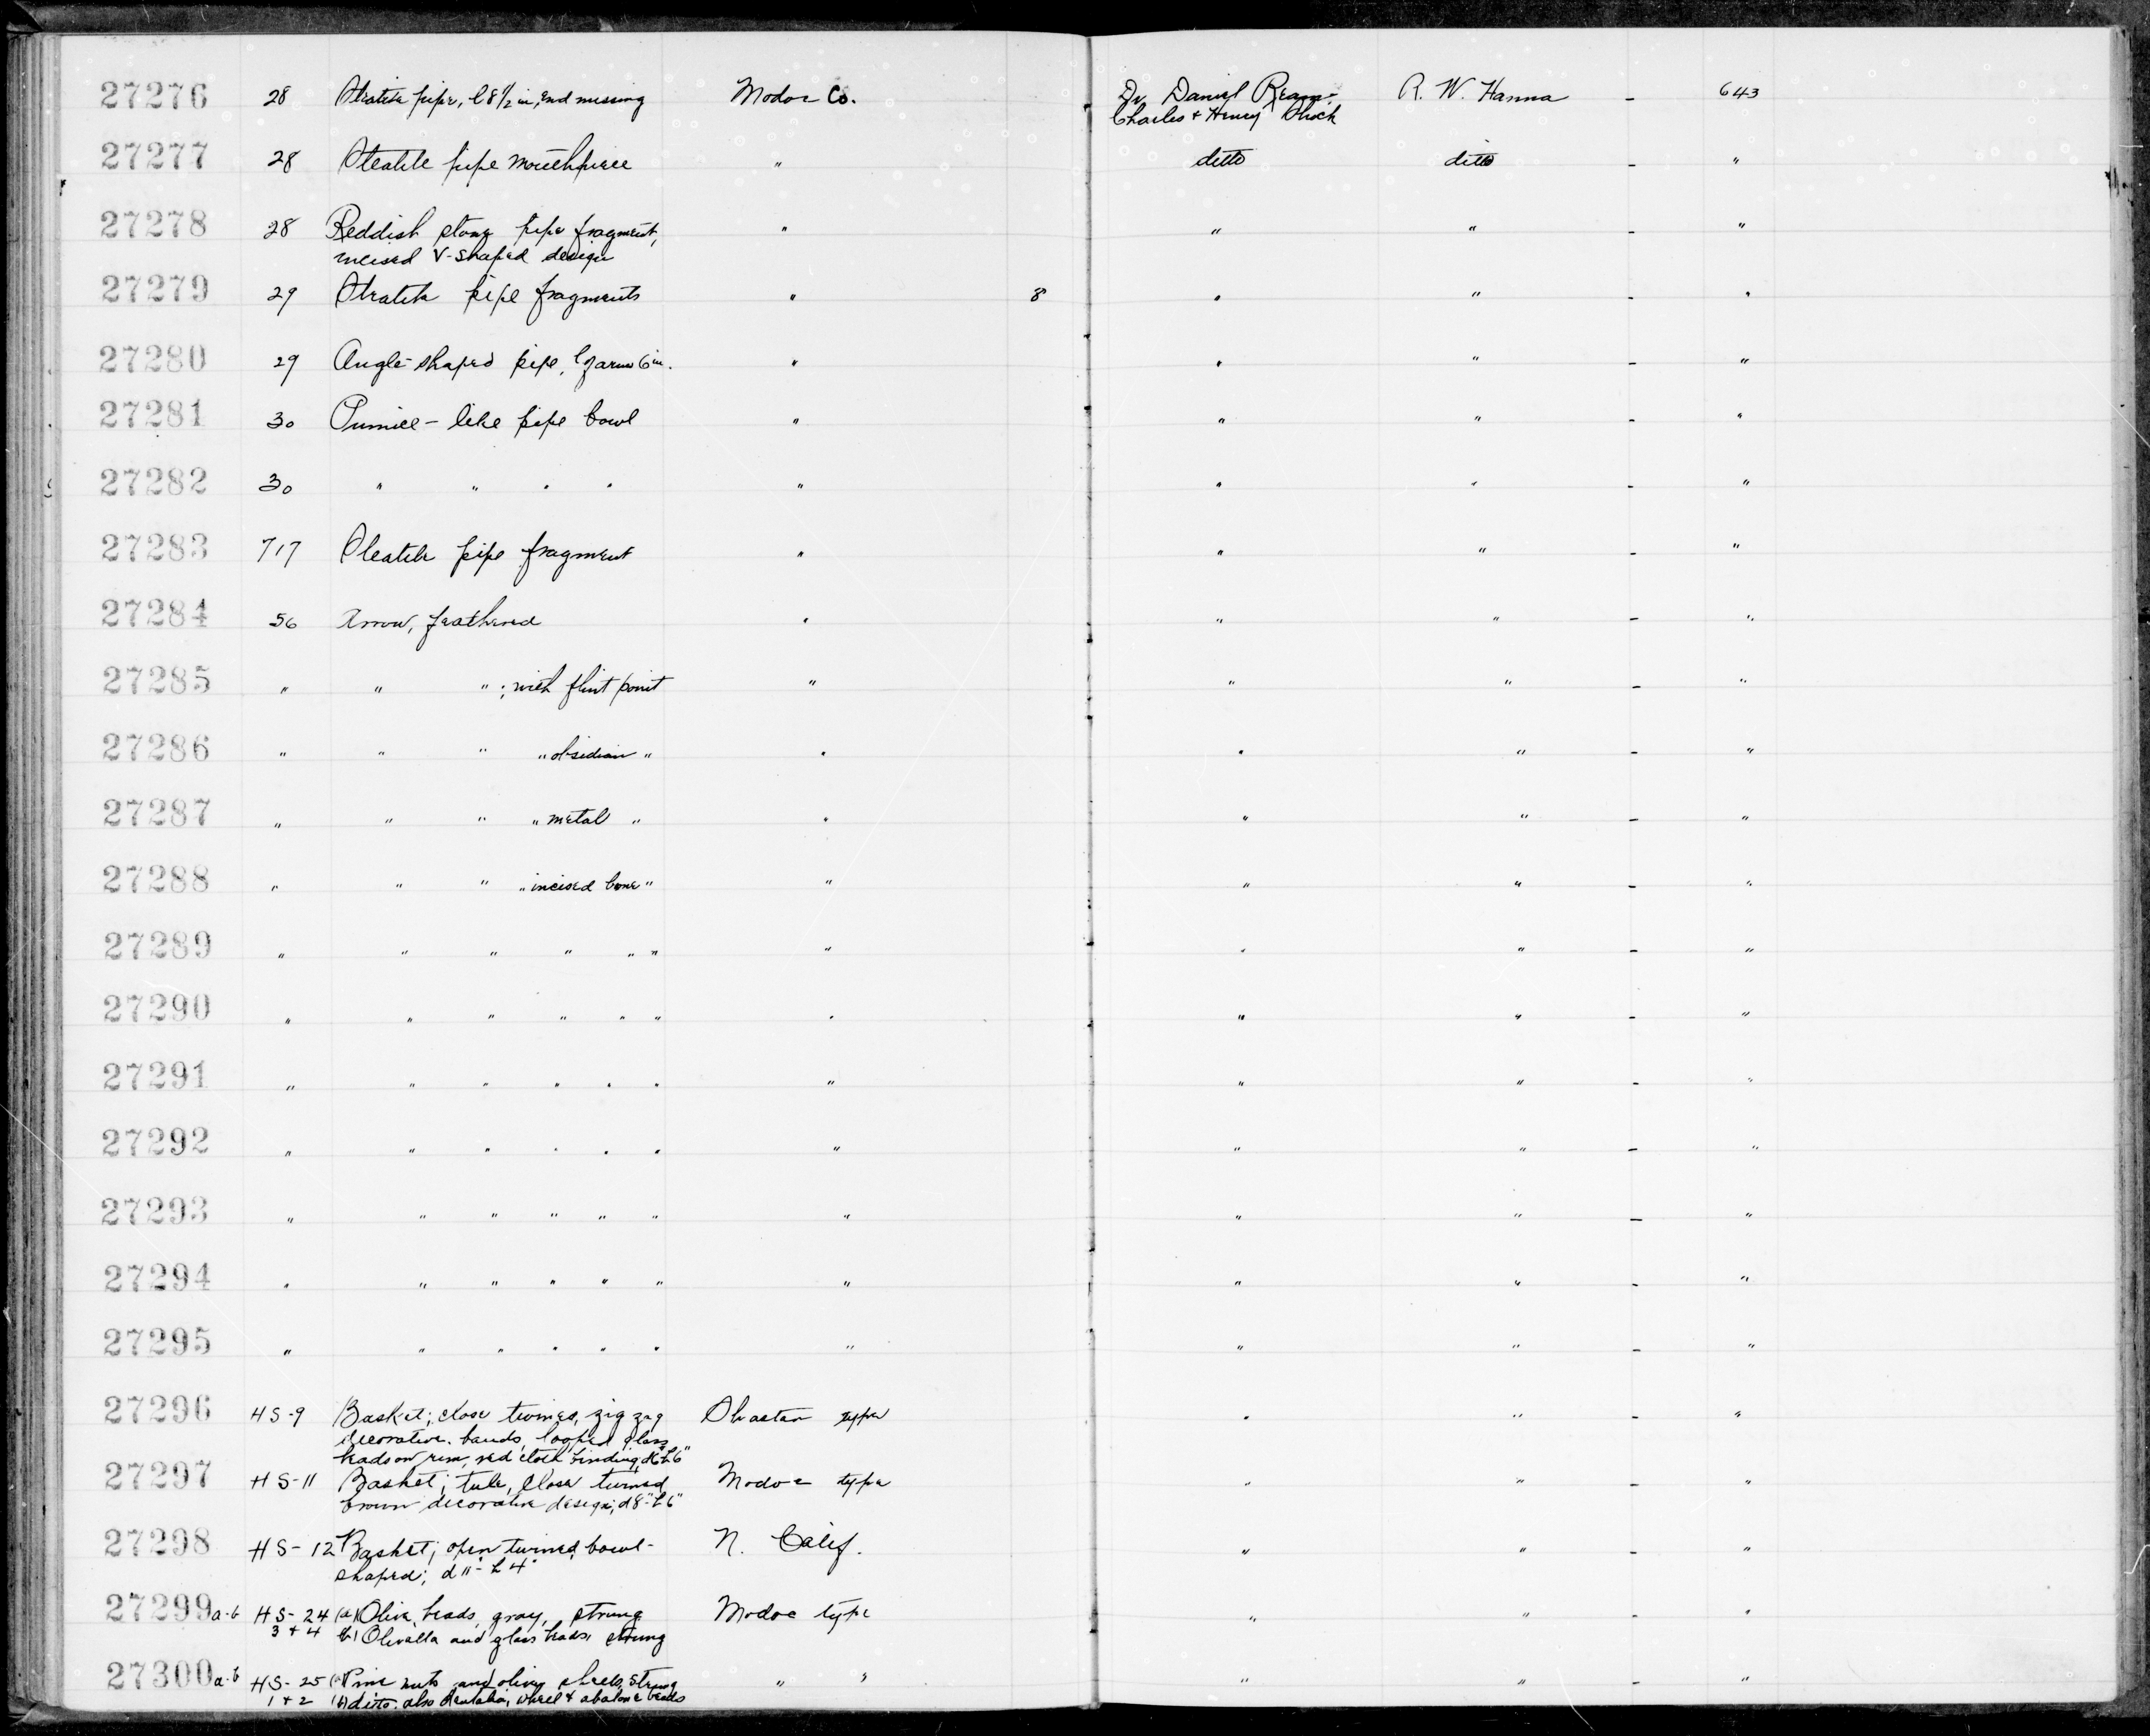 27276 28 Steatite pipe, l 8 1/2 in, end missing Modoc Co. Dr. Daniel Ream; R. W. Hanna - 643
Charles & Henry
27277 28 Steatite pipe mouthpiece " ditto ditto - "
27278 28 Reddish stone pipe fragment, " " " - "
incised V-shaped design
27279 29 Steatite pipe fragments " 8 " " - "
27280 29 Angle-shaped pipe, l of arm 6 in. " " " - "
27281 30 Pumice-like pipe bowl " " " - "
27282 30 " " " " " " " - "
27283 717 Steatite pipe fragment " " " - "
27284 56 Arrow, feathered " " " - "
27285 " " " ; with flint point " " " - "
27286 " " " " obsidian " " " " - "
27287 " " " " metal " " " " - "
27288 " " " " incised bone " " " " - "
27289 " " " " " " " " " - "
27290 " " " " " " " " " - "
27291 " " " " " " " " " - "
27292 " " " " " " " " " - "
27293 " " " " " " " " " - "
27294 " " " " " " " " " - "
27295 " " " " " " " " " - "
27296 HS-9 Basket; close twined, zig zag Shastan type " " - "
decorative bands, looped glass
beads on rim, red cloth binding, d6" h6"
27297 HS-11 Basket; tule, close twined, Modoc type " " - "
brown decorative design; d8"-h6"
27298 HS-12 Basket; open twined, bowl- N. Calif. " " - "
shaped; d11"-h4"
27299 a-b HS-24 (a) Oliva beads, gray, strung Modoc type " " - "
3+4 (b) Olivella and glass beads, strung
27300 a-b HS-25 (a) Pine nuts and olive shells, strung " " " " - "
1+2 (b) ditto. also dentalia, wheel & abalone beads